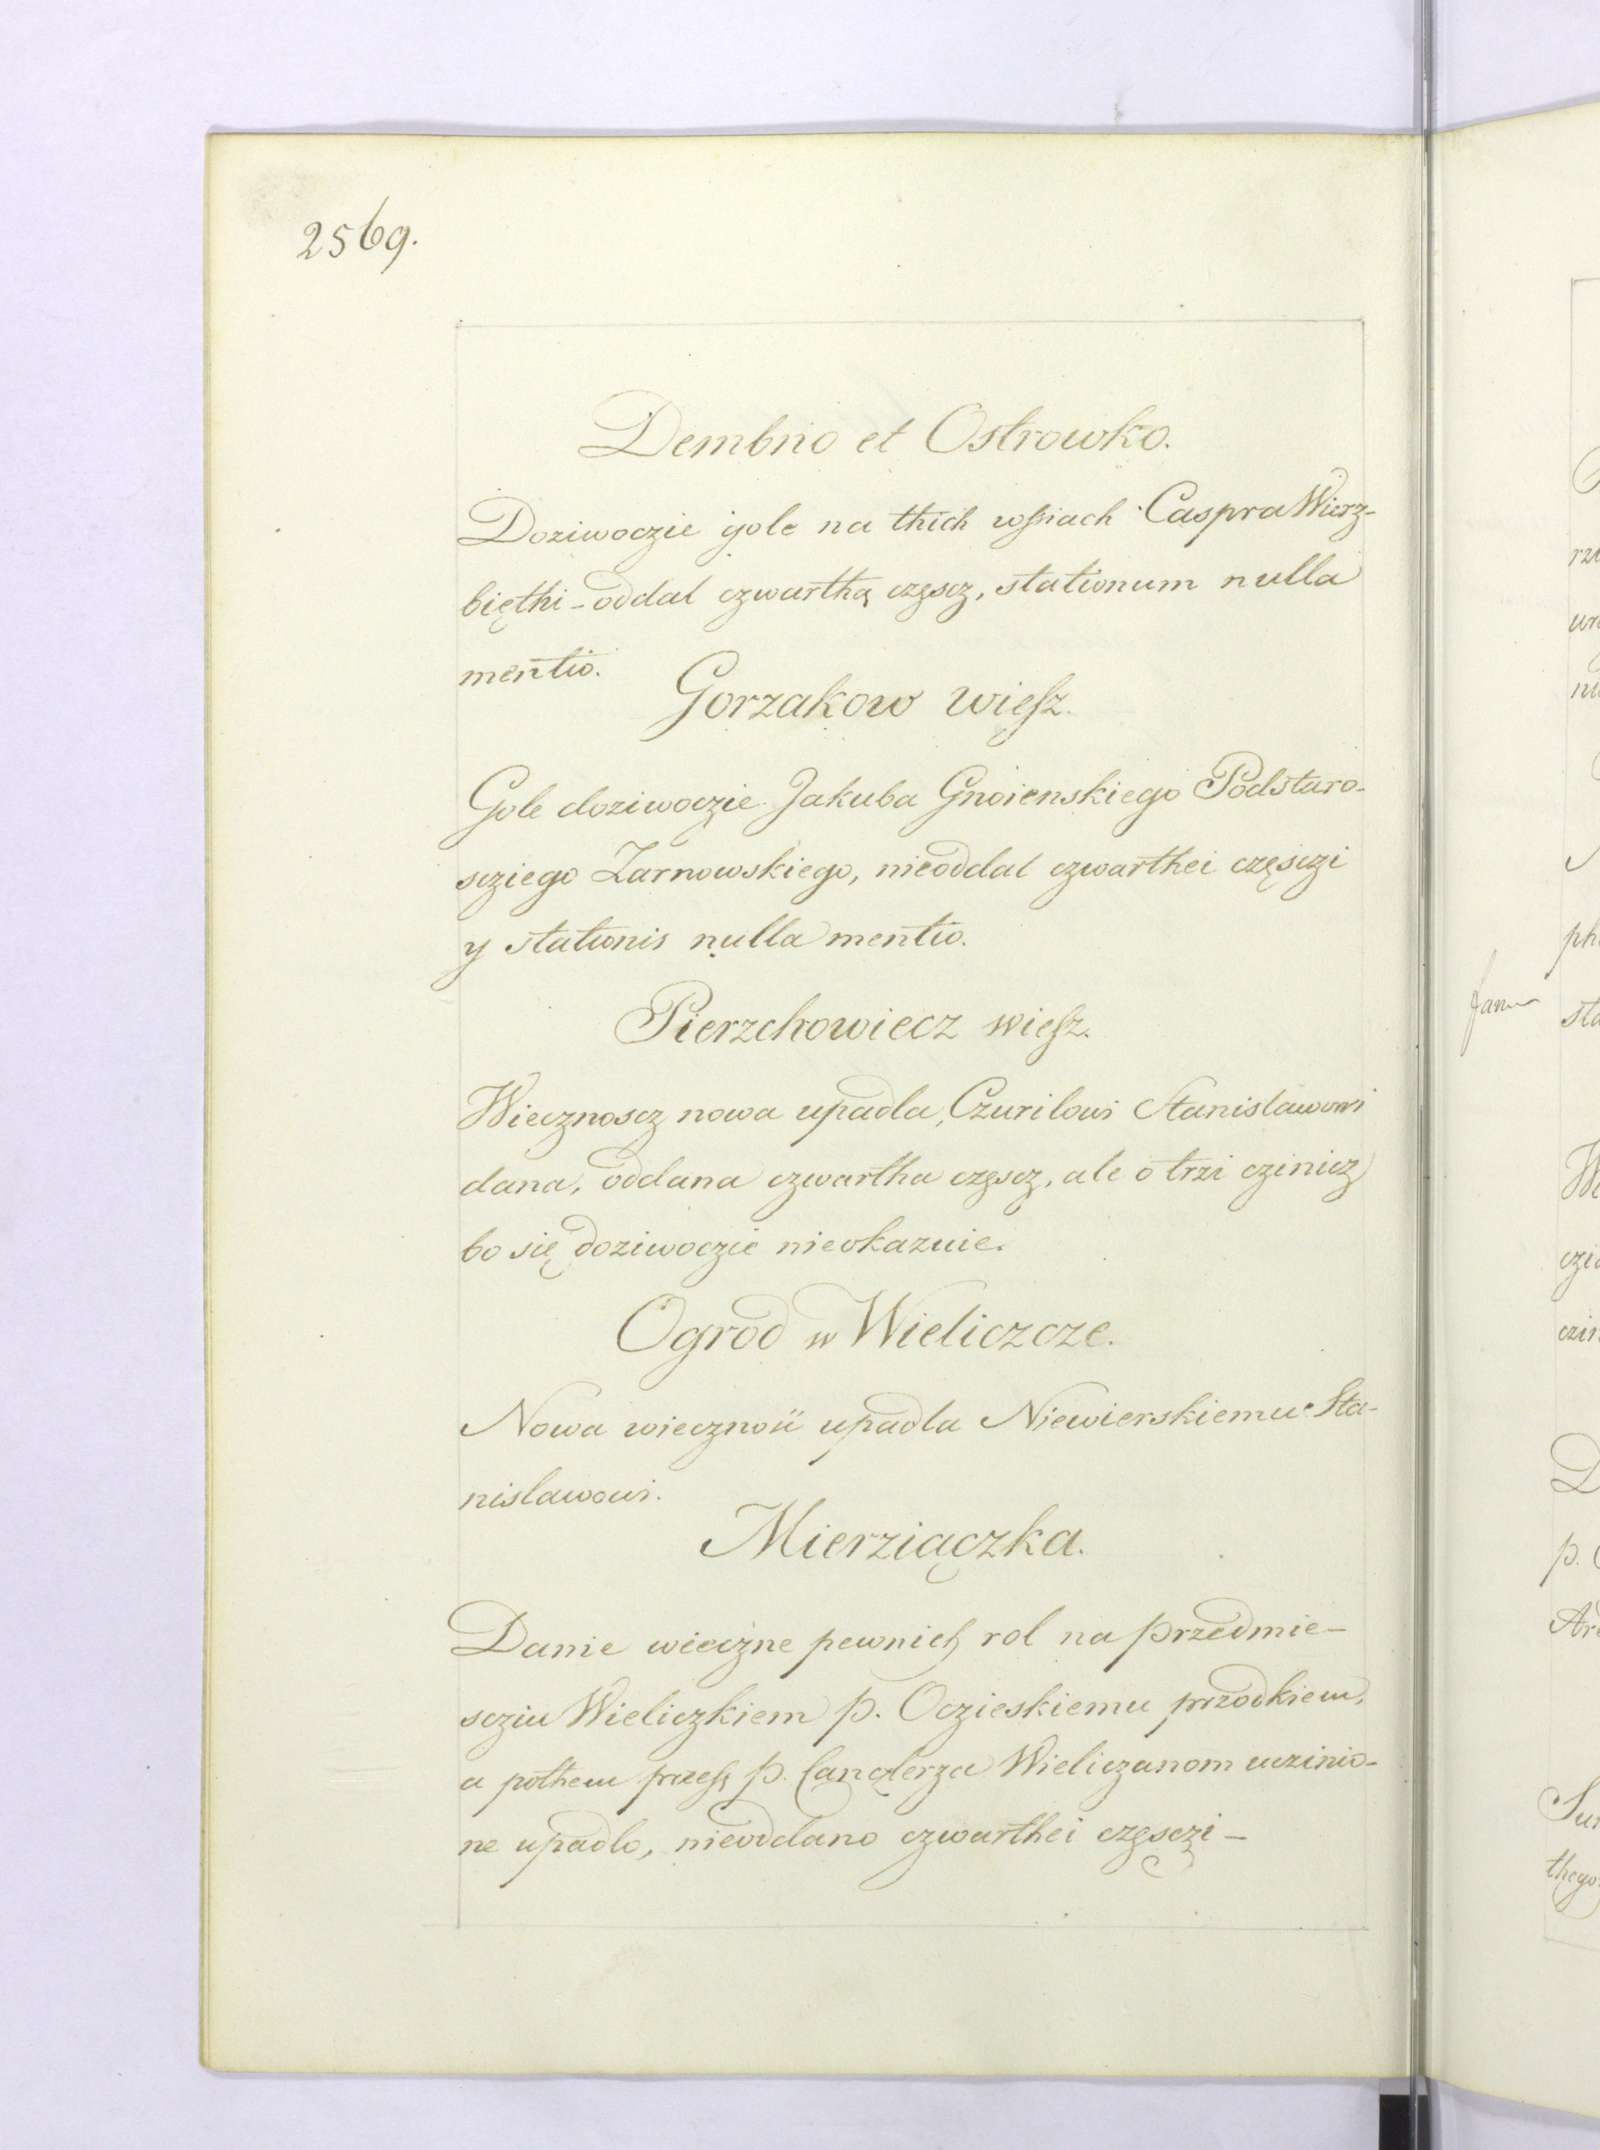 2569.
Dembno et Ostrowko.
Doziwoczie gole na thich wßiach Caspra Wierz-
bięthi - oddal czwarthą częscz, stationum nulla
mentio.
Gorzakow wießz.
Gole doziwoczie Jakuba Gnoienskiego Podstaro-
scziego Zarnowskiego, nieoddal czwarthei częsczi
y stationis nulla mentio.
Pierzchowiecz wießz.
Wiecznoscz nowa upadla, Czurilowi Stanislawowi
dana, oddana czwartha częscz, ale o trzi czinicz
bo się doziwoczie nieokazuie.
Ogrod w Wieliczcze.
Nowa wiecznosc upadla Niewierskiemu Sta-
nislawowi.
Mierziączka.
Danie wieczne pewnich rol na przedmie-
scziu Wieliczkiem p. Oczieskiemu przodkiem,
a pothem przesz p. Canclerza Wieliczanom uczinio-
ne upadlo, nieoddano czwarthei częsczi -